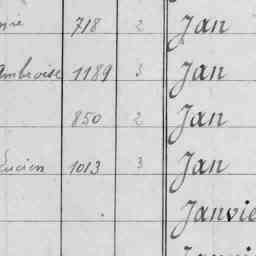 718 2 Jan
Ambroise 1189 3 Jan
850 2 Jan
Lucien 1013 3 Jan
Janvie